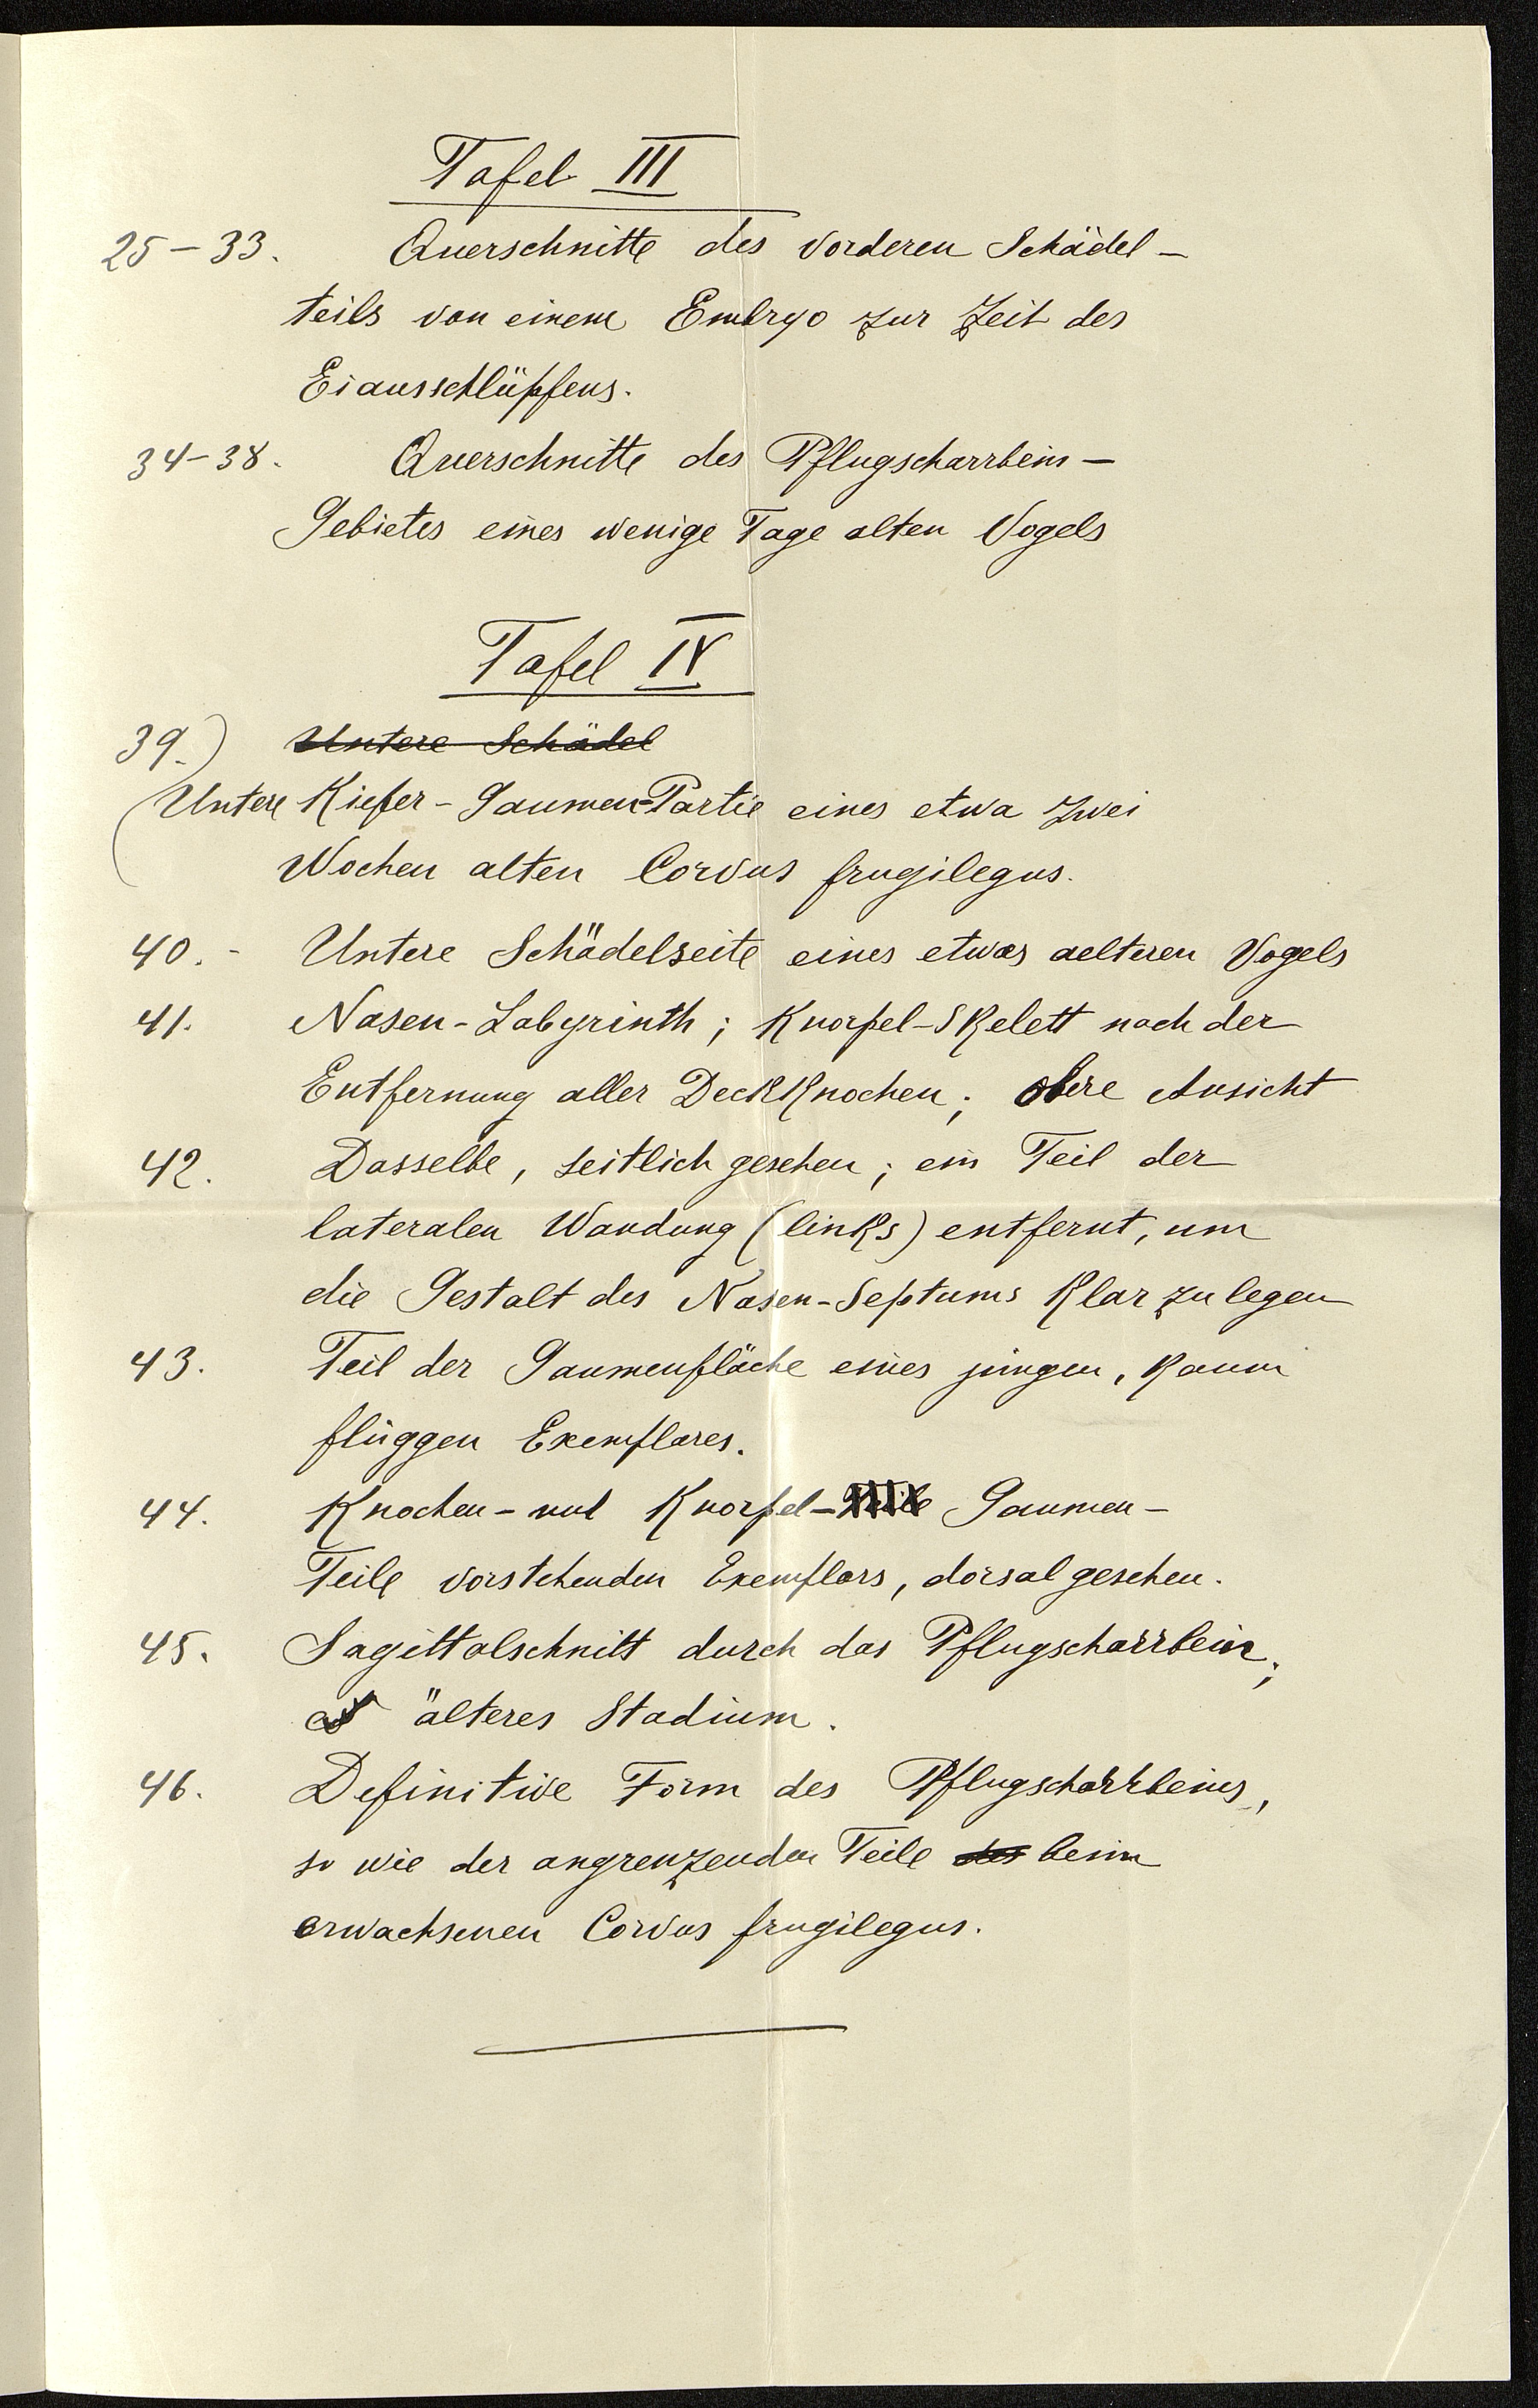 Tafel III
25-33. Querschnitte des vorderen Schädel-
teils von einem Embryo zur Zeit des
Eiausschlüpfens.
34-38. Querschnitte des Pflugscharrbein-
Gebietes eines wenige Tage alten Vogels
Tafel IV
39.) Untere Schädel
(Untere Kiefer-Gaumen-Partie eines etwa zwei
Wochen alten Corvus frugilegus.
40. - Untere Schädelseite eines etwas aelteren Vogels
41. Nasen-Labyrinth; Knorpel-Skelett nach der
Entfernung aller Deckknochen; obere Ansicht
42. Dasselbe, seitlich gesehen; ein Teil der
lateralen Wandung (links) entfernt, um
die Gestalt des Nasen-Septums klar zu legen
43. Teil der Gaumenfläche eines jungen, kaum
flüggen Exemplares.
44. Knochen- und Knorpel-Teile Gaumen-
Teile vorstehenden Exemplars, dorsal gesehen.
45. Sagittalschnitt durch das Pflugscharrbein;
älteres Stadium.
46. Definitive Form des Pflugscharrbeins,
so wie der angrenzenden Teile des beim
erwachsenen Corvus frugilegus.